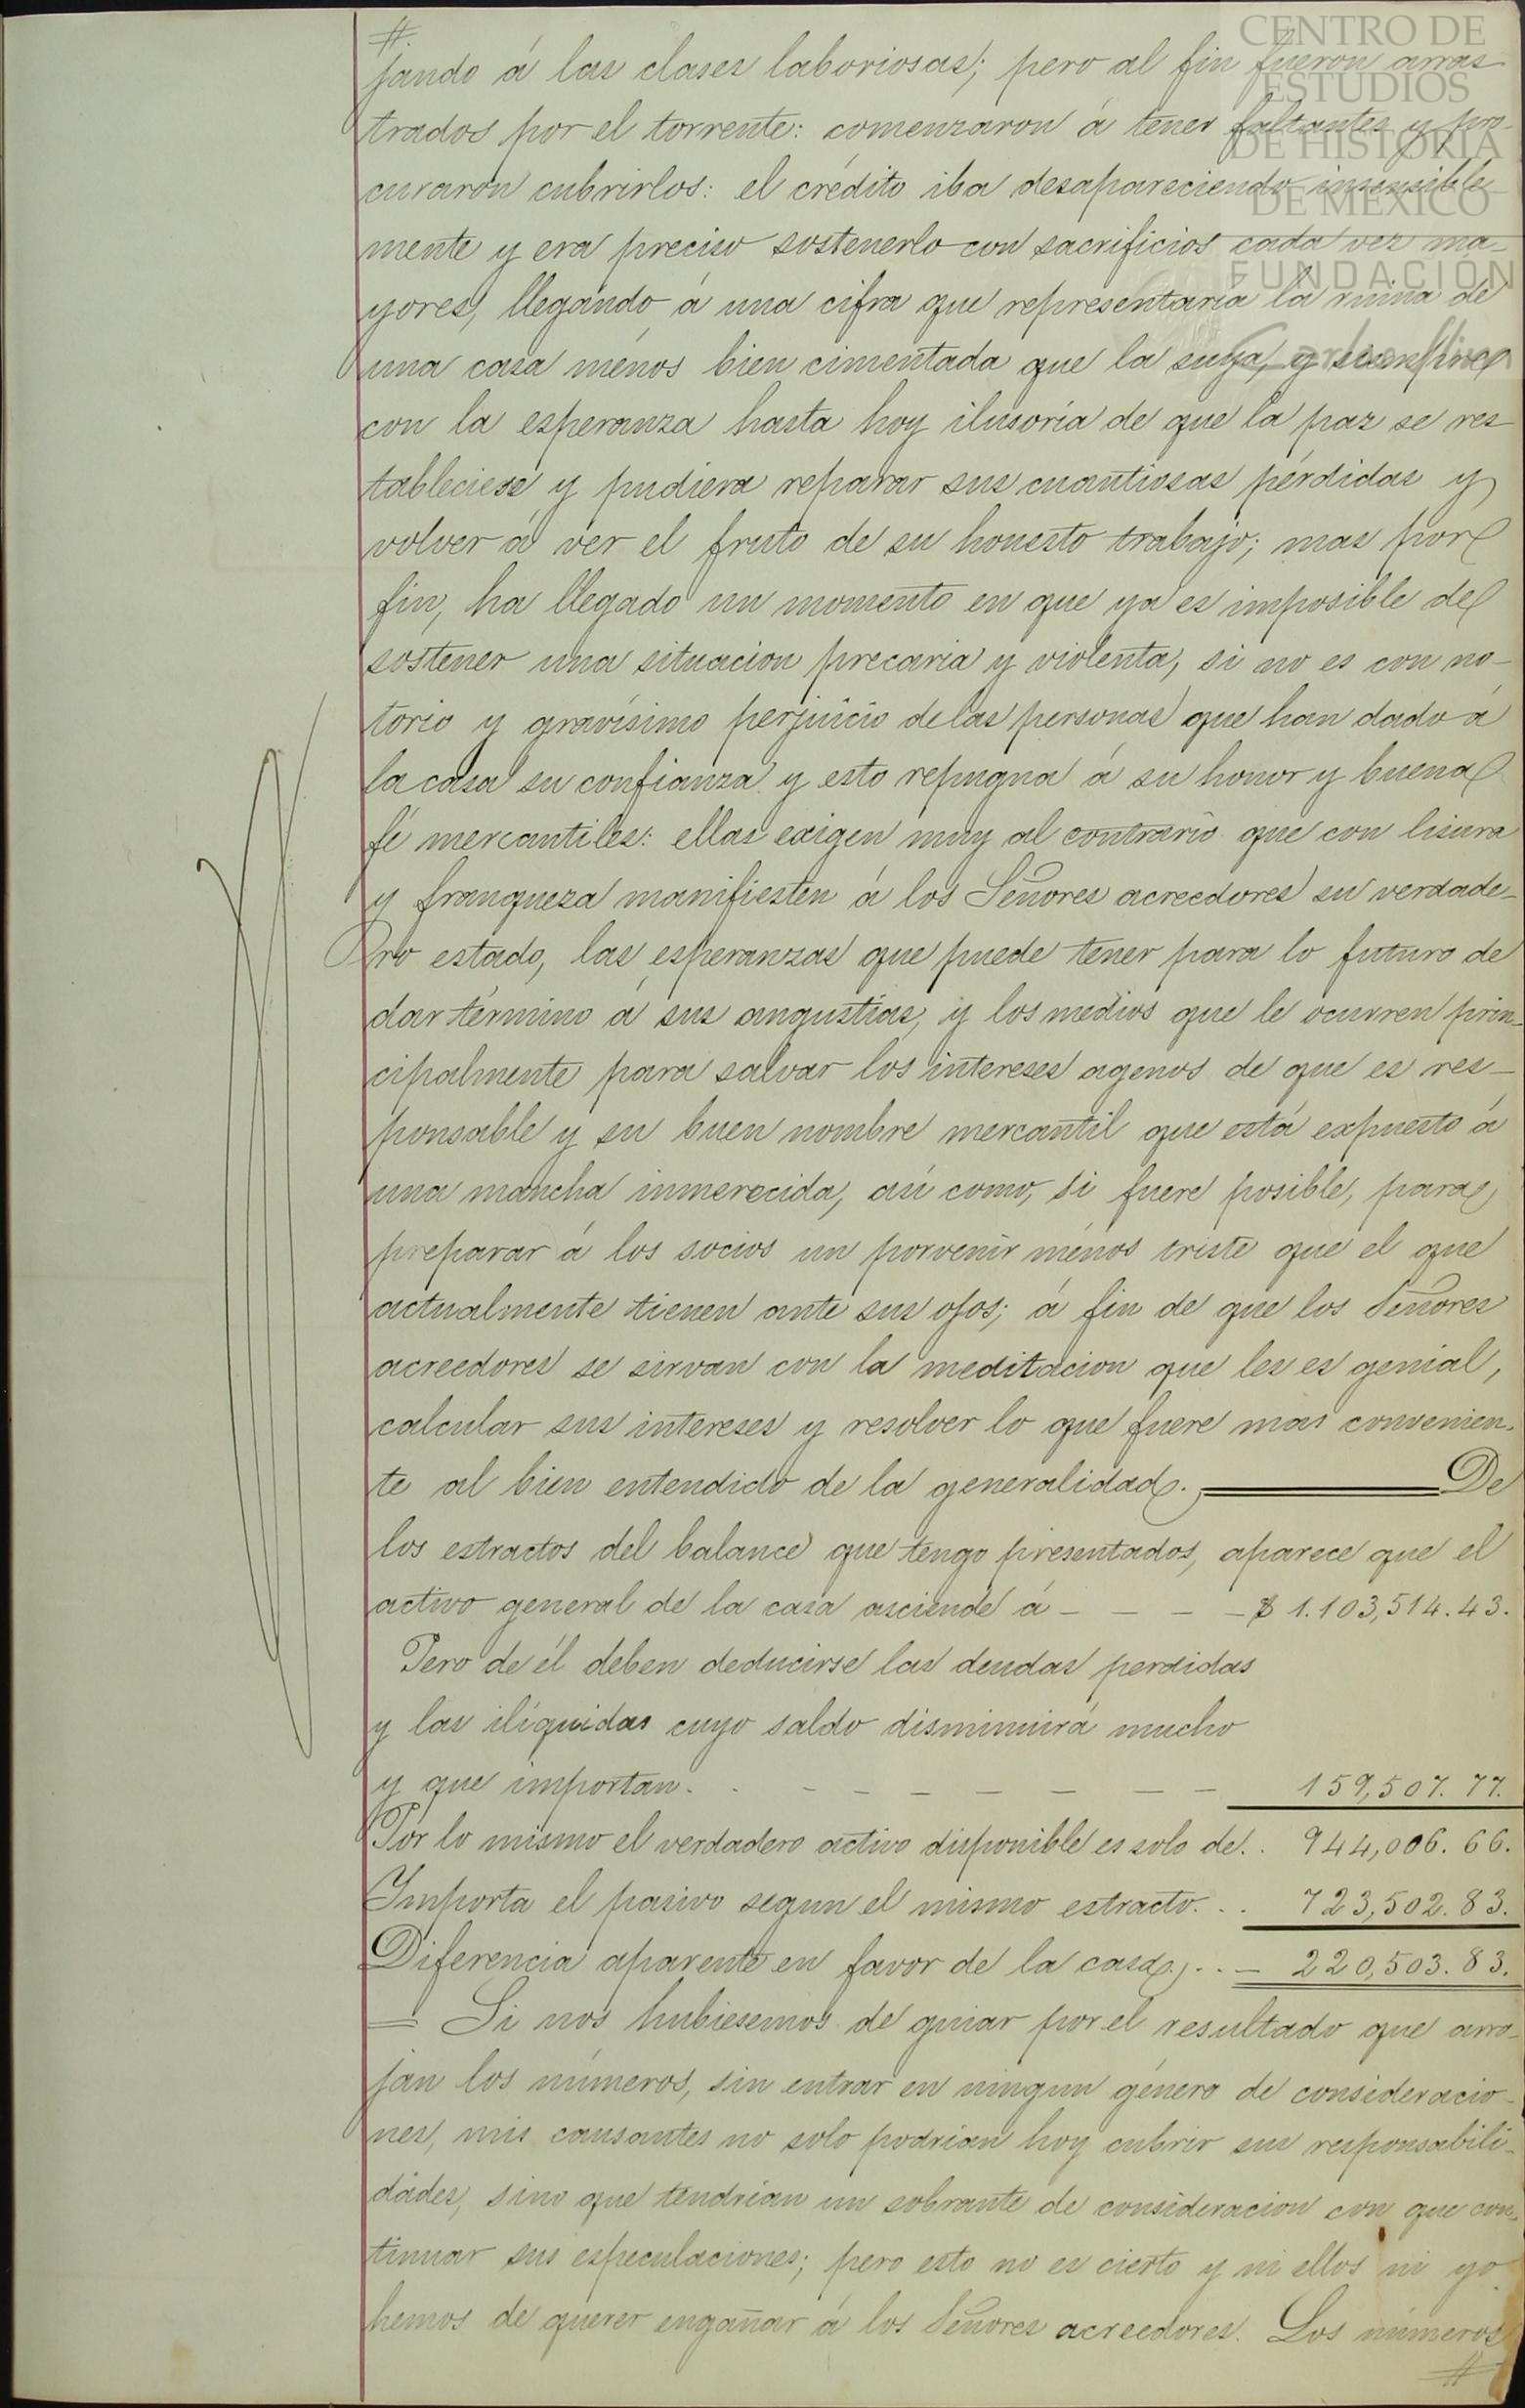 #.
jando á las clases laboriosas; pero al fin fueron arras-
trados por el torrente: comenzaron á tener faltantes y pro-
curaron cubrirlos: el crédito iba desapareciendo insensible-
mente y era preciso sostenerlo con sacrificios cada vez ma-
yores, llegando á una cifra que representaria la ruina de
una casa ménos bien cimentada que la suya, y siempre
con la esperanza hasta hoy ilusoria de que la paz se res-
tableciese y pudiera reparar sus cuantiosas pérdidas y
volver á ver el fruto de su honesto trabajo; mas por
fin, ha llegado un momento en que ya es imposible de
sostener una situacion precaria y violenta, si no es con no-
torio y gravísimo perjuicio de las personas que han dado á
la casa su confianza y esto repugna á su honor y buena
fé mercantiles: ellas exigen muy al contrario que con lisura
y franqueza manifiesten á los Señores acreedores su verdade-
ro estado, las esperanzas que puede tener para lo futuro de
dar término á sus angustias, y los medios que le ocurren prin-
cipalmente para salvar los intereses agenos de que es res-
ponsable y su buen nombre mercantil que está expuesto á
una mancha inmerecida, asi como, si fuere posible, para
preparar á los socios un porvenir ménos triste que el que
actualmente tienen ante sus ojos; á fin de que los Señores
acreedores se sirvan con la meditacion que les es genial,
calcular sus intereses y resolver lo que fuere mas convenien-
te al bien entendido de la generalidad. De
los estractos del balance que tengo presentados, aparece que el
activo general de la casa asciende á - - - - $ 1.103,514.43.
Pero de él deben deducirse las deudas perdidas
y las ilíquidas cuyo saldo disminuirá mucho
y que importan. . - - - - - - - 159,507.77.
Por lo mismo el verdadero activo disponible es solo de. . 944,006.66.
Importa el pasivo segun el mismo estracto. . . 723,502.83.
Diferencia aparente en favor de la casa, . . - 220,503.83.
= Si nos hubiesemos de guiar por el resultado que arro-
jan los números, sin entrar en ningun género de consideracio-
nes, mis causantes no solo podrian hoy cubrir sus responsabili-
dades, sino que tendrian un sobrante de consideracion con que con-
tinuar sus especulaciones; pero esto no es cierto y ni ellos ni yo
hemos de querer engañar á los Señores acreedores. Los números
#
CENTRO DE
ESTUDIOS
DE HISTORIA
DE MEXICO
FUNDACIÓN
Carlos Slim